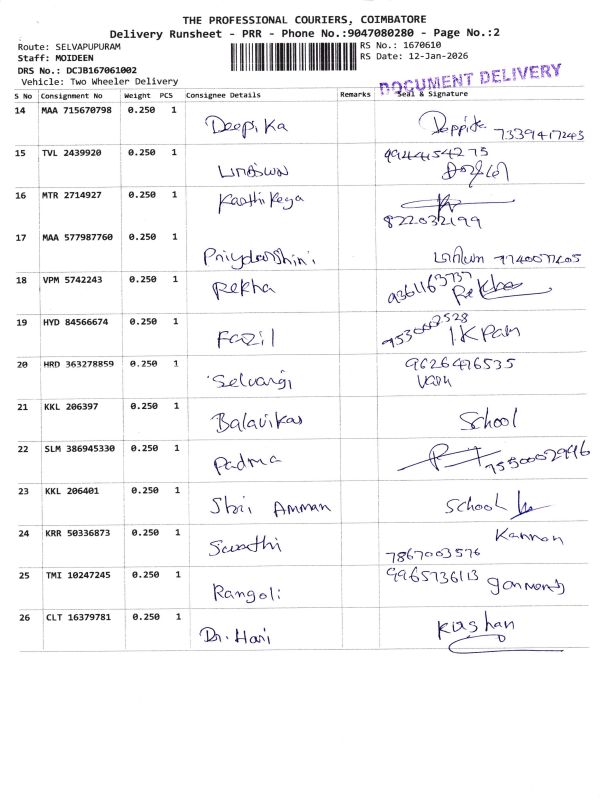 THE PROFESSIONAL COURIERS, COIMBATORE
Delivery Runsheet - PRR - Phone No.:9047080280 - Page No.:2
Route: SELVAPUPURAM
Staff: MOIDEEN
DRS No.: DCJB167061002
Vehicle: Two Wheeler Delivery
RS No.: 1670610
RS Date: 12-Jan-2026
DOCUMENT DELIVERY
S No Consignment No Weight PCS Consignee Details Remarks Seal & Signature
14 MAA 715670798 0.250 1 Deepika 7339417243
15 TVL 2439920 0.250 1 9944154275
16 MTR 2714927 0.250 1 Karthikeya 822032199
17 MAA 577987760 0.250 1 Priydarshini
18 VPM 5742243 0.250 1 Rekha 9361163737 Rekha
19 HYD 84566674 0.250 1 Fazil
20 HRD 363278859 0.250 1 Selvargi 9626476535
21 KKL 206397 0.250 1 Balavikas School
22 SLM 386945330 0.250 1 Padma
23 KKL 206401 0.250 1 Shri Amman School
24 KRR 50336873 0.250 1 Swathi Kannan
7867003576
25 TMI 10247245 0.250 1 Rangoli 9965736113
26 CLT 16379781 0.250 1 Dr. Hari